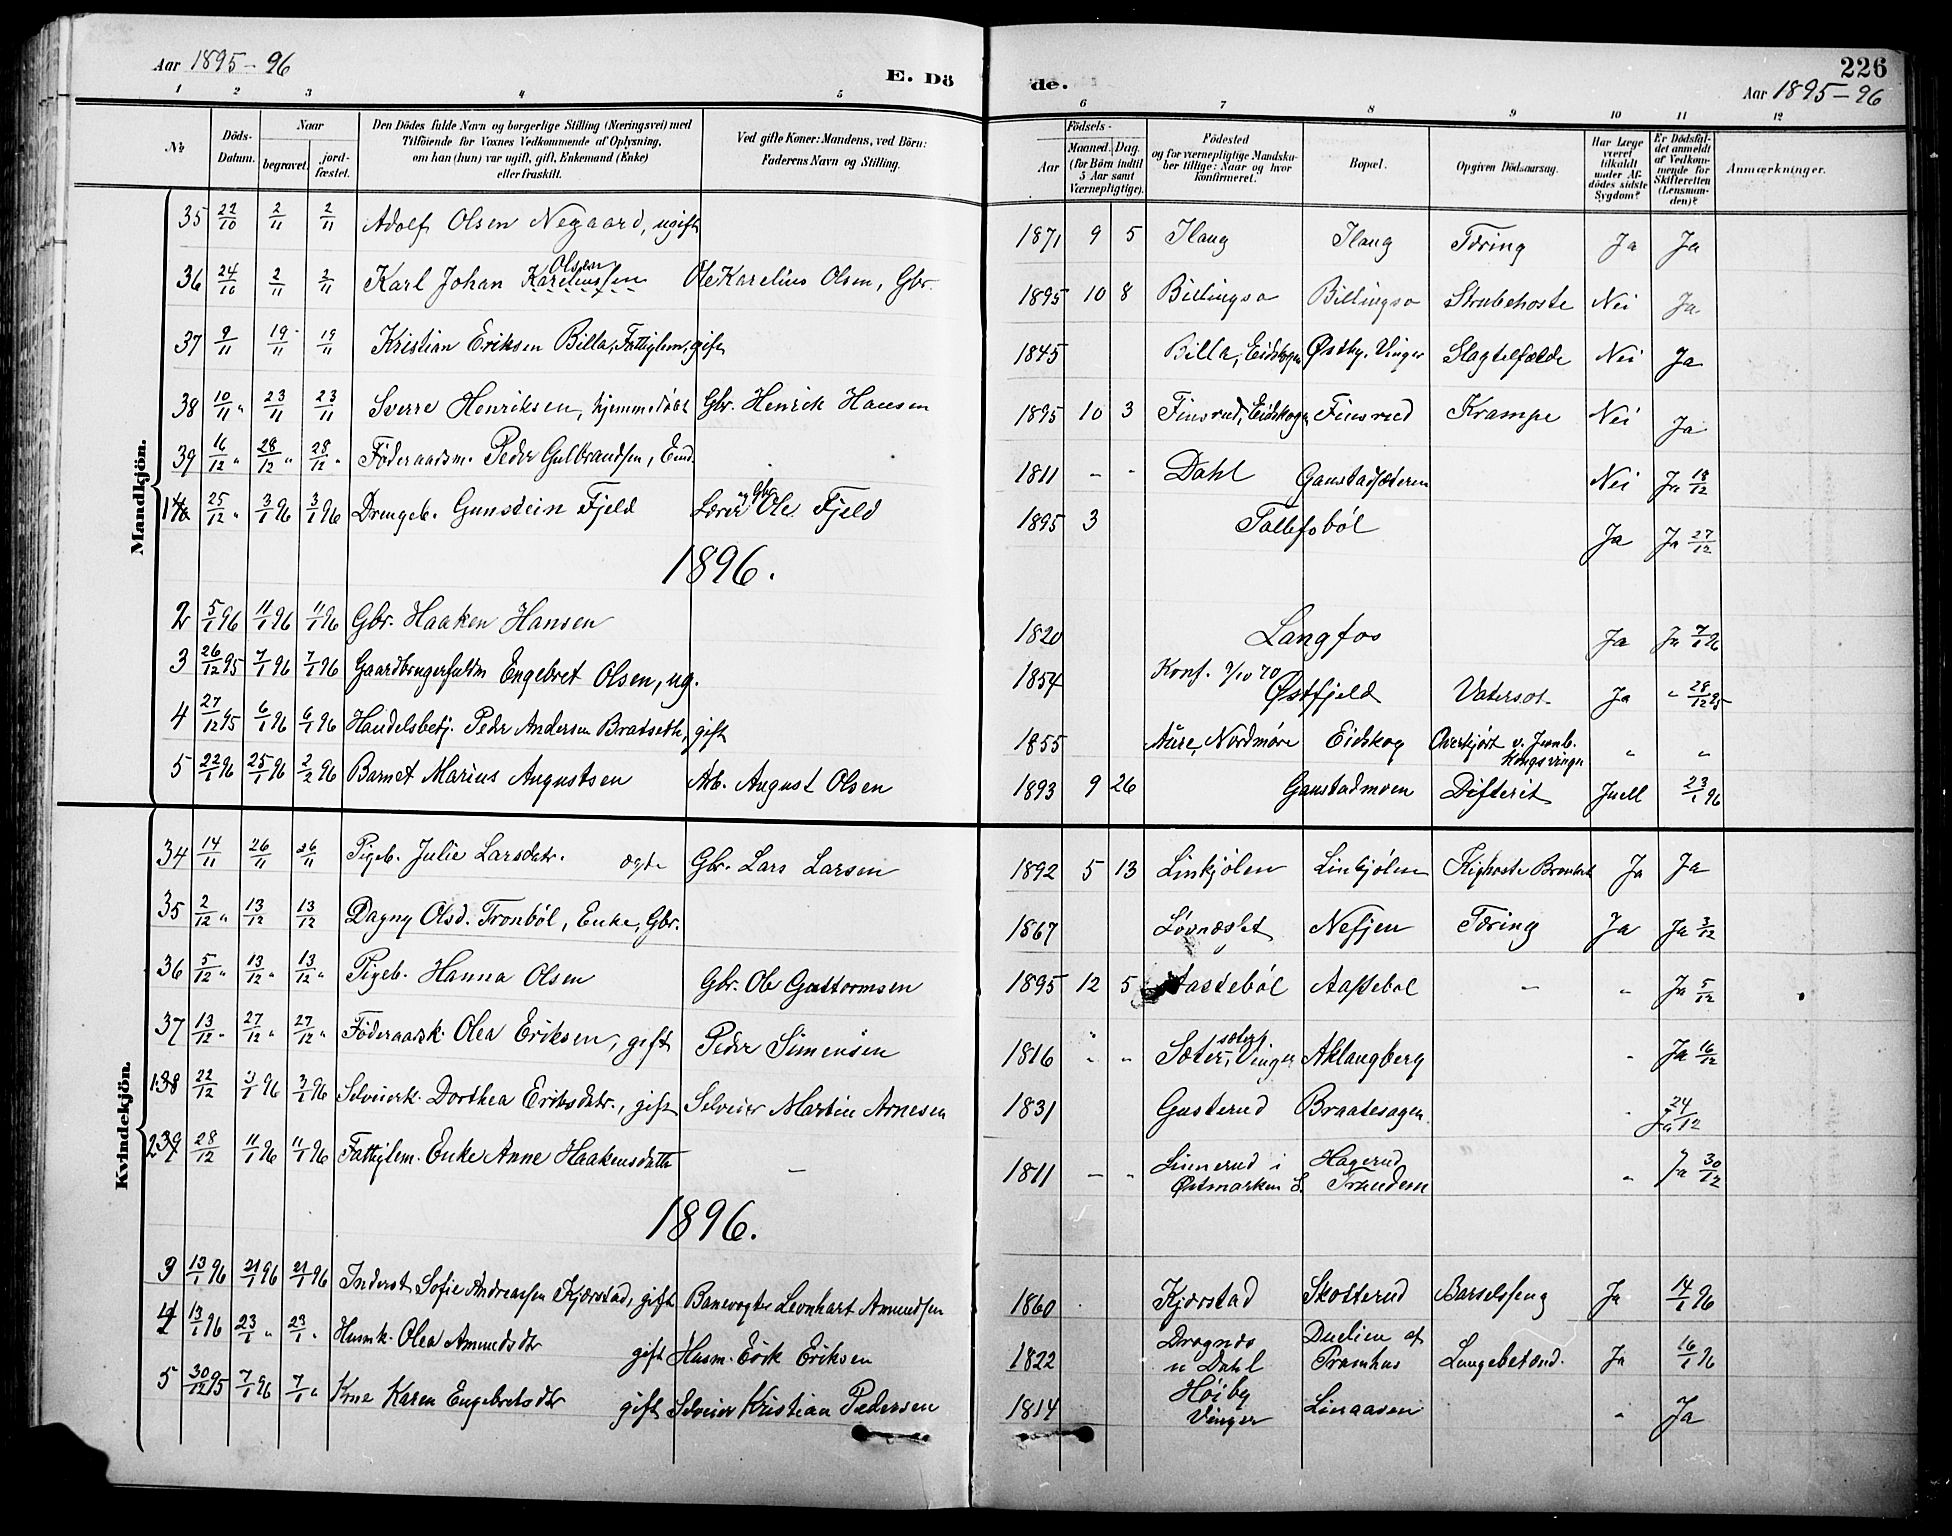 Aar 1895-96
E. Dö
de.
226
Aar 1895-96
1 2 3 4 5 6 7 8 9 10 11 12
No
Döds-Datum.
Naar
begravet.
jord-fæstet.
Den Dödes fulde Navn og borgerlige Stilling (Næringsvei) med
Tilföiende for Voxnes Vedkommende af Oplysning,
om han (hun) var ugift, gift, Enkemand (Enke)
eller fraskilt.
Ved gifte Koner: Mandens, ved Börn:
Faderens Navn og Stilling.
Födsels-
Aar
Maaned. Dag.
(for Börn indtil
5 Aar samt
Værnepligtige).
Födested
og for værnepligtige Mandska-
ber tillige: Naar og hvor
konfirmeret.
Bopæl.
Opgiven Dödsaarsag.
Har Læge
været
tilkaldt
under Af-
dödes sidste
Sygdom?
Er Dödsfal-
det anmeldt
af Vedkom-
mende for
Skifteretten
(Lensman-
den)?
Anmærkninger.
Mandkjön.
35 22/10 2/11 2/11 Adolf Olsen Negaard, ugift 1871 9 5 Ilang Ilang Tæring Ja Ja
36 24/10 2/11 2/11 Karl Johan Kareliussen Olsen Ole Karelius Olsen, Gbr. 1895 10 8 Billingso Billingso Strubehoste Nei Ja
37 9/11 19/11 19/11 Kristian Eriksen Billa, Fattiglem, gift 1845 Billa, Eidskogen Østby, Vinger Slagtilfælde Nei Ja
38 10/11 " 23/11 23/11 Sverre Henriksen, hjemmedöbt Gbr. Henrik Hansen 1895 10 3 Finsrud, Eidskogn Finsrud Krampe Nei Ja
39 16/12 " 28/12 " 28/12 " Föderaadsm. Peder Gulbrandsen, Enkem. 1811 - - Dahl Gaustadsæteren Nei Ja 18/12
1 40 25/12 " 3/1 96 3/1 96 Drengeb. Gunstein Fjeld Lærer og Gbr. Ole Fjeld 1895 3 Tollefsböl Ja Ja 27/12
1896.
2 5/1 96 11/1 96 11/1 96 Gbr. Haaken Hansen 1820 Langfos Ja Ja 7/1 96
3 26/12 95 7/1 96 7/1 96 Gaardbrugerfuldm Engebret Olsen, ug. 1854 Konf. 9/10 70 Østfjeld Vatersot. Ja " 28/12 95
4 27/12 95 6/1 96 6/1 96 Handelsbetj. Peder Andersen Bratseth, gift 1855 Aure, Nordmøre Eidskog Overkjört v. Jernb. Kongsvinger " "
5 22/1 96 25/1 96 2/2 96 Barnet Marius Augustsen Arb. August Olsen 1893 9 26 Gaustadmoen Difterit Juell 23/1 96
Kvindekjön.
34 14/11 26/11 26/11 Pigeb. Julie Larsdatr. ægte Gbr. Lars Larsen 1892 5 13 Linkjølen Linkjølen Kighoste Bronkit Ja Ja
35 2/12 " 13/12 13/12 Dagny Olsd. Tronböl, Enke, Gbr. 1867 Løvnæslet Nefjen Tæring Ja Ja 3/12
36 5/12 " 13/12 " 13/12 " Pigeb. Hanna Olsen Gbr. Ole Guttormsen 1895 12 5 Aastebøl Aastebol - " Ja 5/12
37 13/12 " 27/12 " 27/12 " Föderaadsk. Olea Eriksen, gift Peder Simensen 1816 " " Sæter, Vinger sæter Aklangberg " Ja 16/12
1 38 22/12 3/1 96 3/1 96 Selveierk. Dorthea Eriksdatr., gift Selveier Martin Arnesen 1831 Gusterud Braatesagen " Ja 24/12
2 39 28/12 11/1 96 11/1 96 Fattiglem. Enke Anne Haakensdatter - 1811 - " Linnerud i Østmarken S. Hagerud Trandem " Ja 30/12
1896.
3 13/1 96 21/1 96 21/1 96 Inderst Sofie Andreassen Kjærstad, gift Banevogter Leonhart Amundsen 1860 Kjærstad Skotterud Barselseng Ja 14/1 96
4 13/1 96 23/1 " 23/1 " Husmk. Olea Amundsdtr gift Husm. Erik Eriksen 1822 Dragnæs u Dahl Duelien af Pramhus Lungebetænd. Ja 16/1 96
5 30/12 95 7/1 96 7/1 " Kone Karen Engebretsdtr gift Selveier Kristian Pedersen 1814 Høiby Vinger Linaasen " Ja